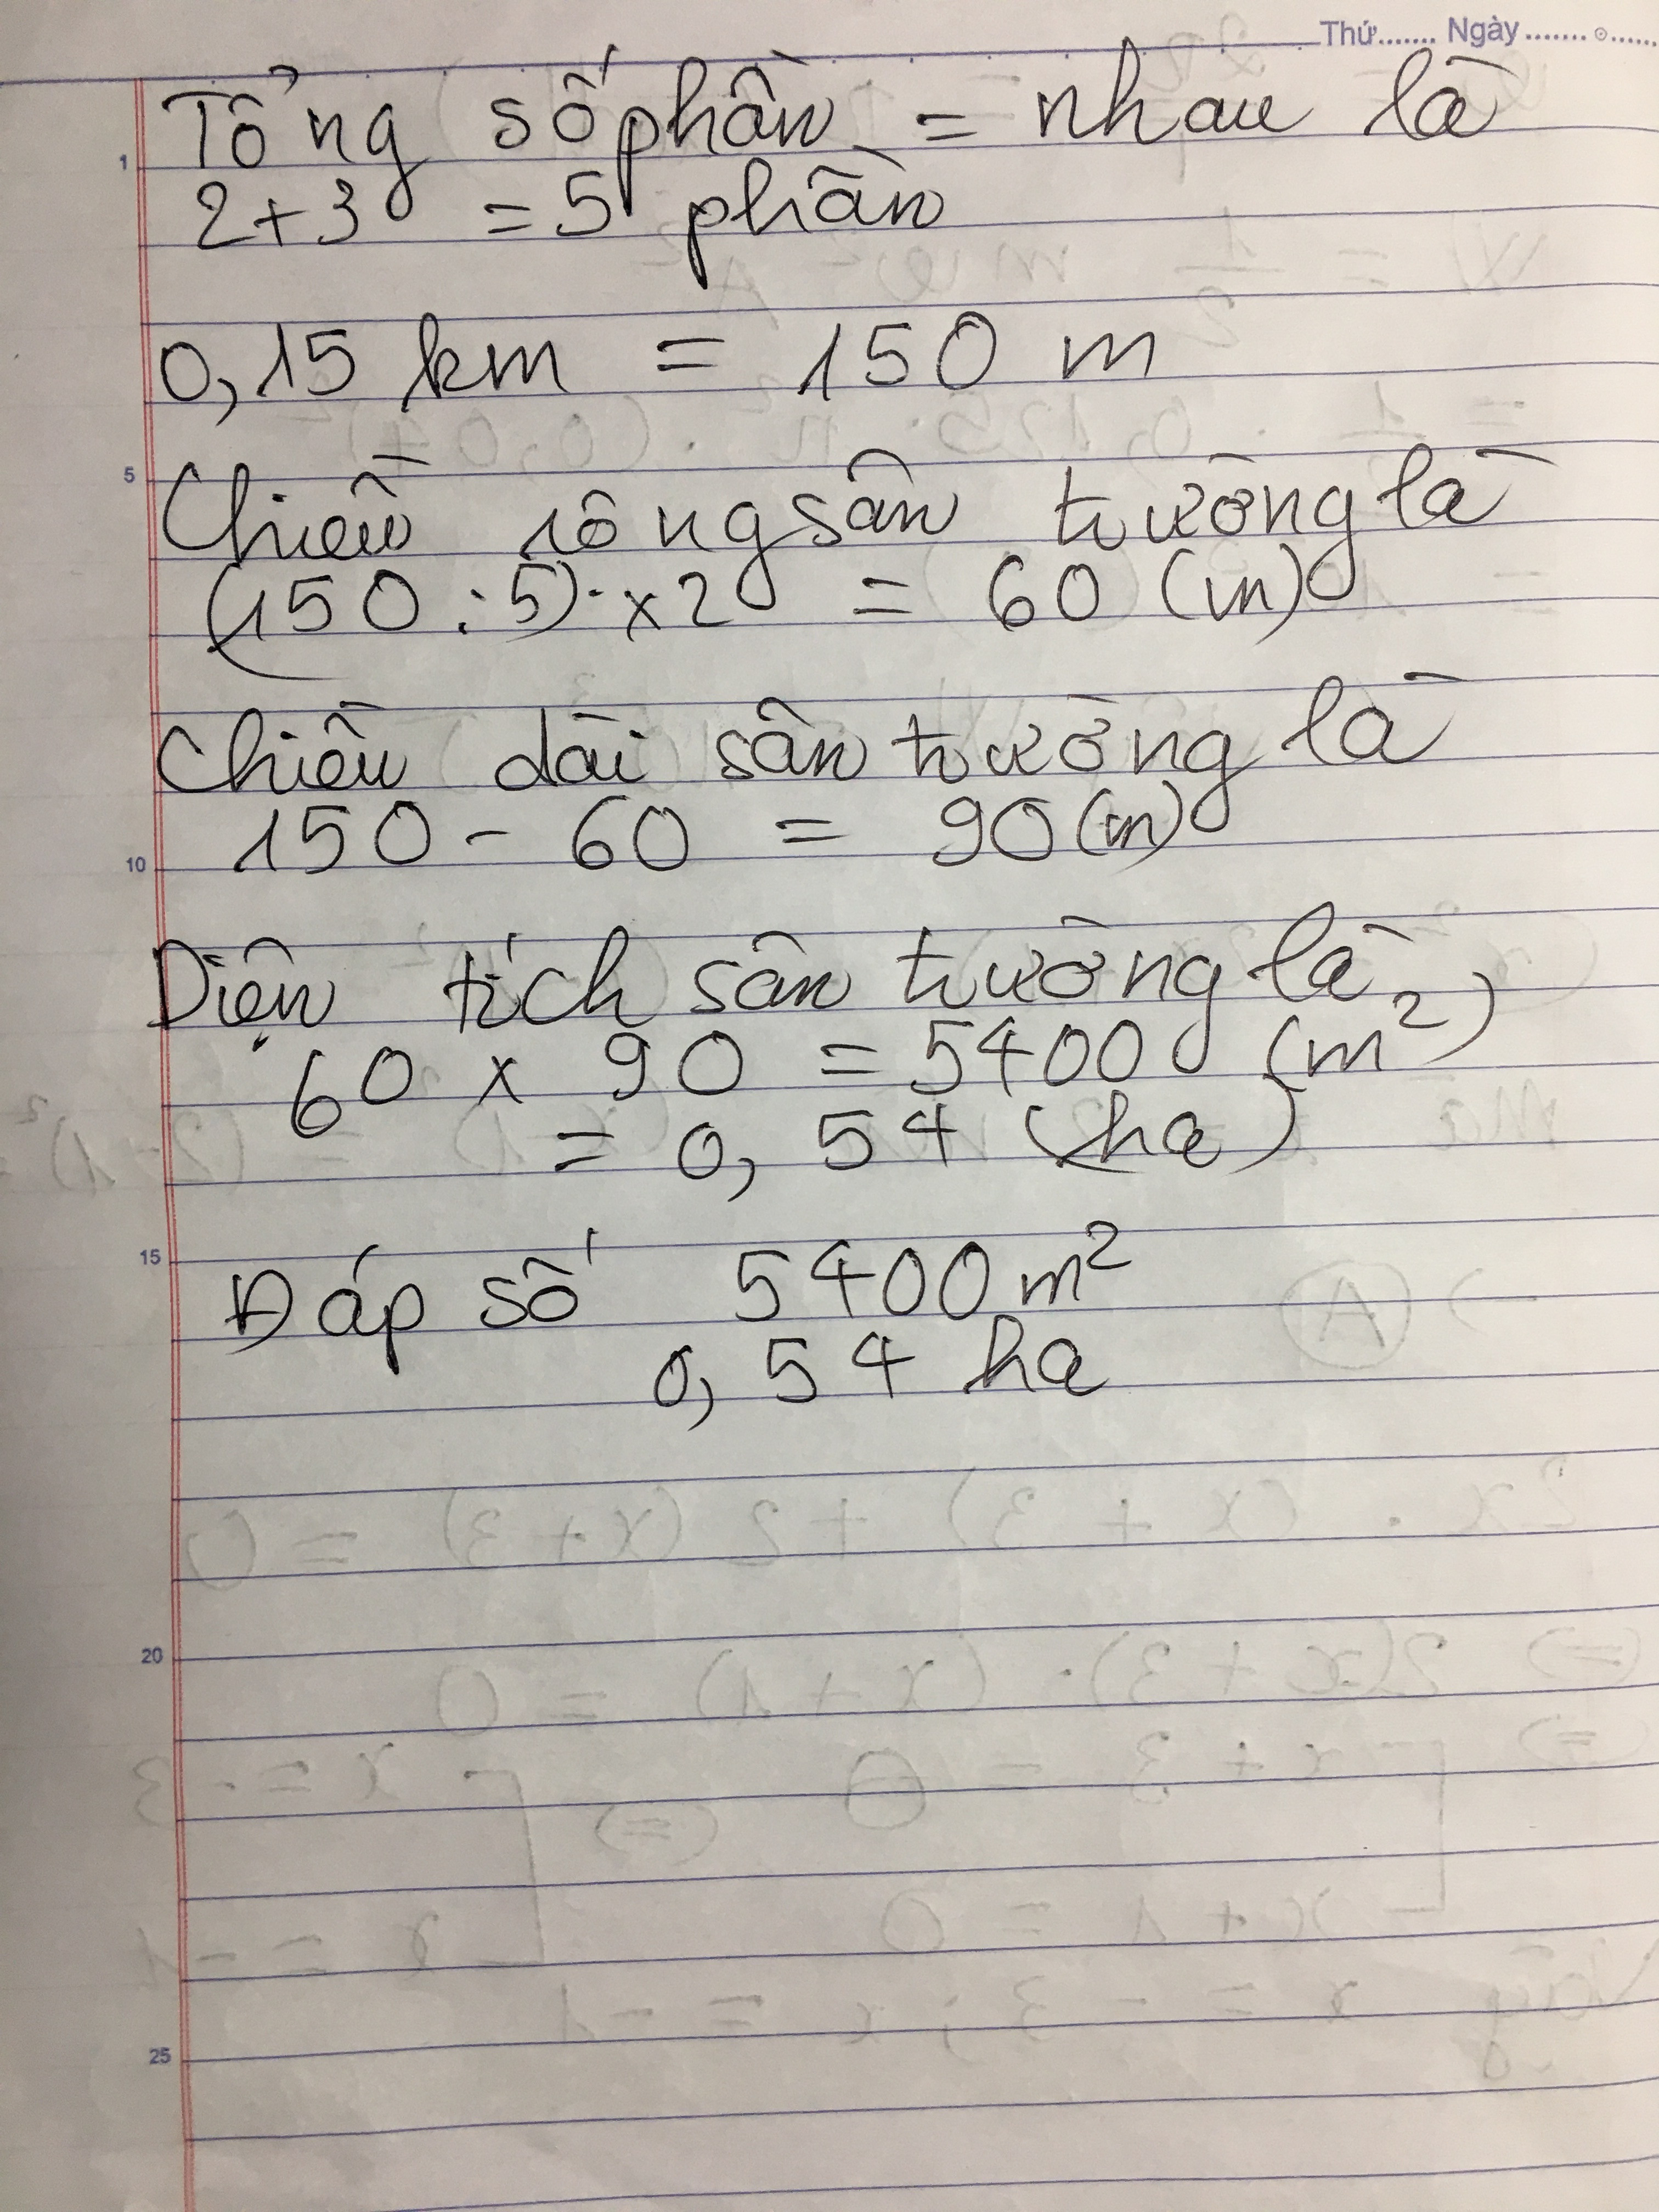 Thứ....... Ngày ....... ......
Tổng số phần = nhau là
1
2+3 = 5 phần
0,15 km = 150 m
5
Chiều rông sân trường là
(150 : 5) x 2 = 60 (m)
Chiều dài sân trường là
150 - 60 = 90 (m)
10
Diện tích sân trường là
60 x 90 = 5400 (m²)
= 0,54 (ha)
15
Đáp số 5400 m²
0,54 ha
20
25